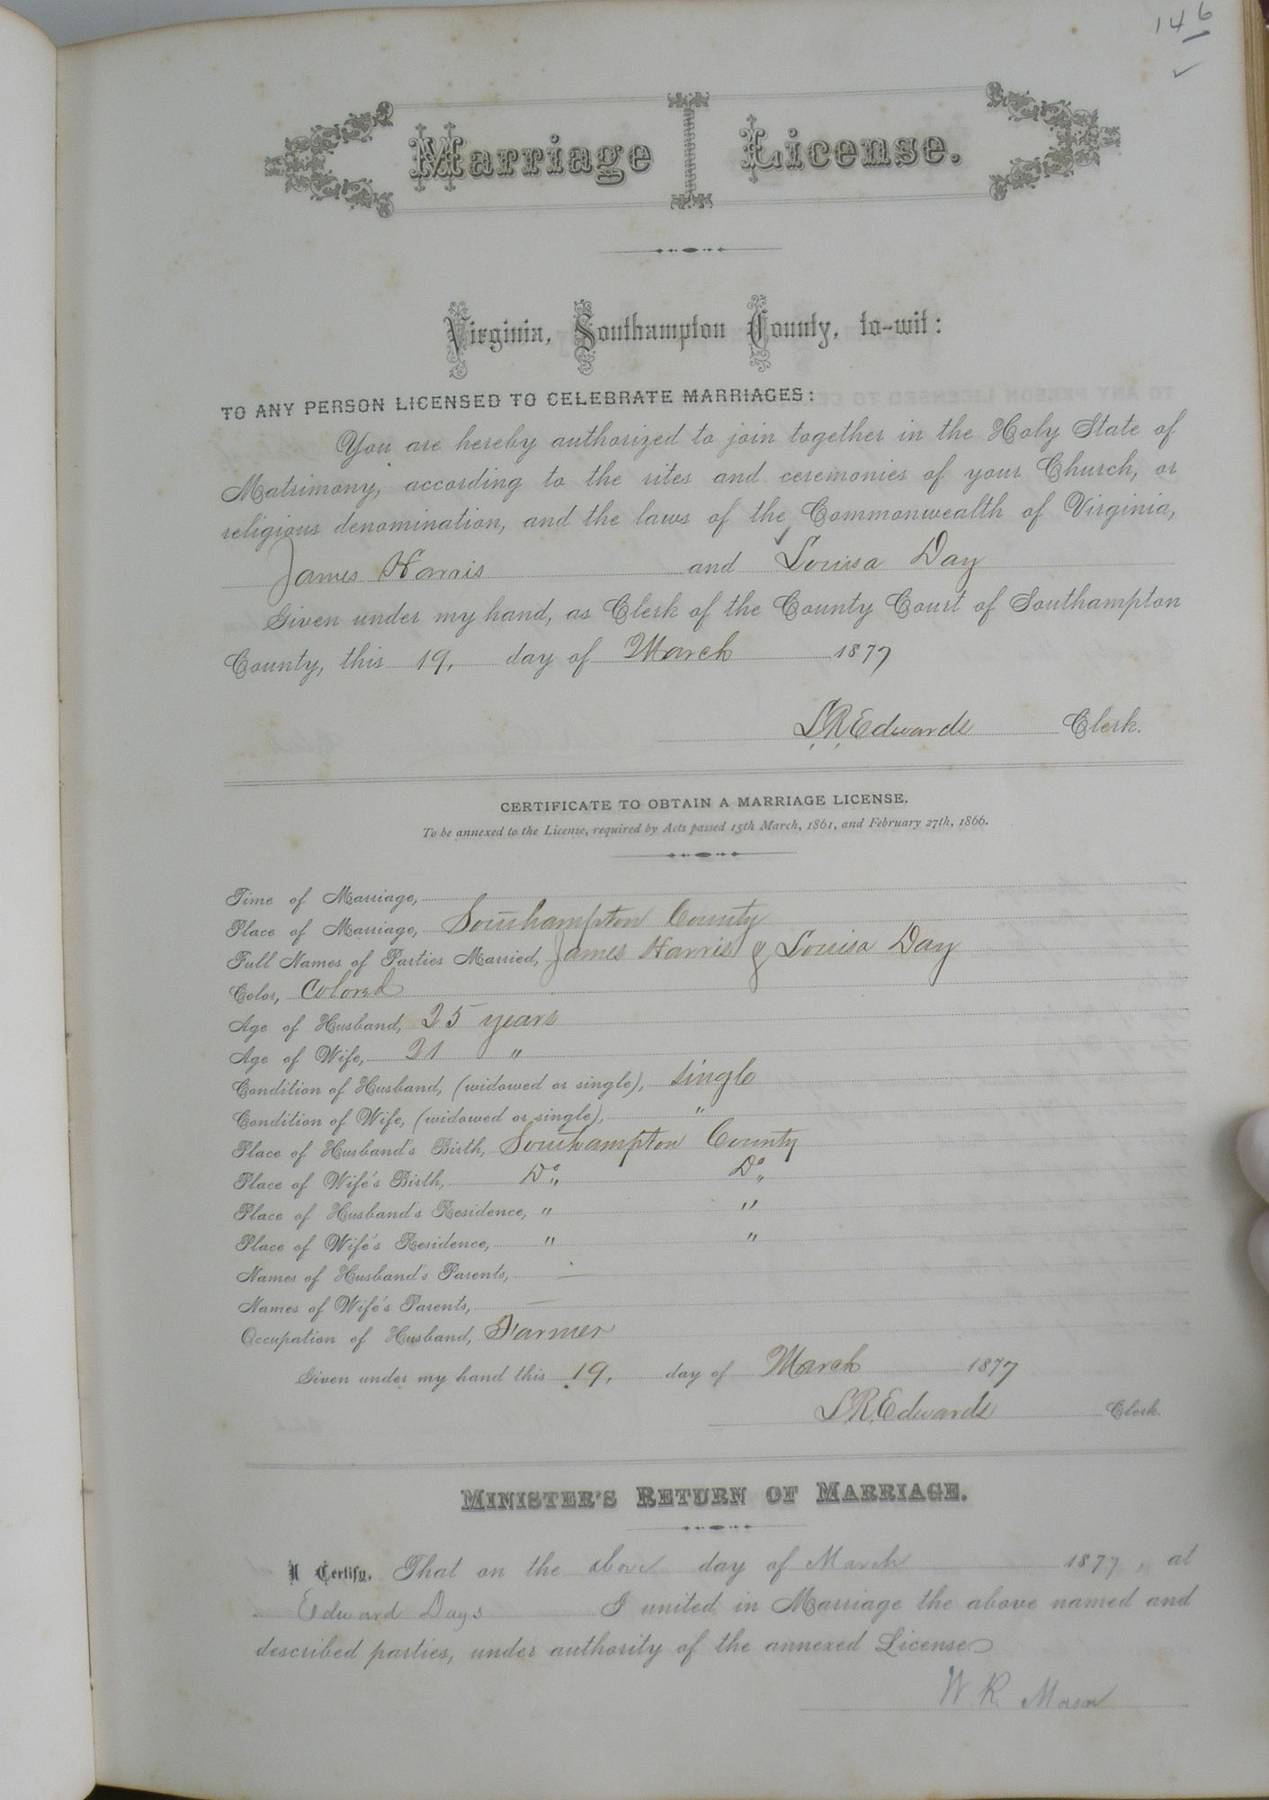 146
✓
Marriage License.
Virginia, Southampton County, to-wit:
TO ANY PERSON LICENSED TO CELEBRATE MARRIAGES:
You are hereby authorized to join together in the Holy State of
Matrimony, according to the rites and ceremonies of your Church, or
religious denomination, and the laws of the Commonwealth of Virginia,
James Harris and Louisa Day
Given under my hand, as Clerk of the County Court of Southampton
County, this 19, day of March 1877
L.R. Edwards Clerk.
CERTIFICATE TO OBTAIN A MARRIAGE LICENSE.
To be annexed to the License, required by Acts passed 15th March, 1861, and February 27th, 1866.
Time of Marriage,
Place of Marriage, Southampton County
Full Names of Parties Married, James Harris & Louisa Day
Color, Colored
Age of Husband, 25 years
Age of Wife, 21 "
Condition of Husband, (widowed or single), single
Condition of Wife, (widowed or single), "
Place of Husband's Birth, Southampton County
Place of Wife's Birth, Do " Do "
Place of Husband's Residence, " "
Place of Wife's Residence, " "
Names of Husband's Parents, —
Names of Wife's Parents, —
Occupation of Husband, Farmer
Given under my hand this 19, day of March 1877
L.R. Edwards Clerk.
MINISTER'S RETURN OF MARRIAGE.
I Certify, That on the above day of March 1877, at
Edward Days I united in Marriage the above named and
described parties, under authority of the annexed License
W. R. Mason